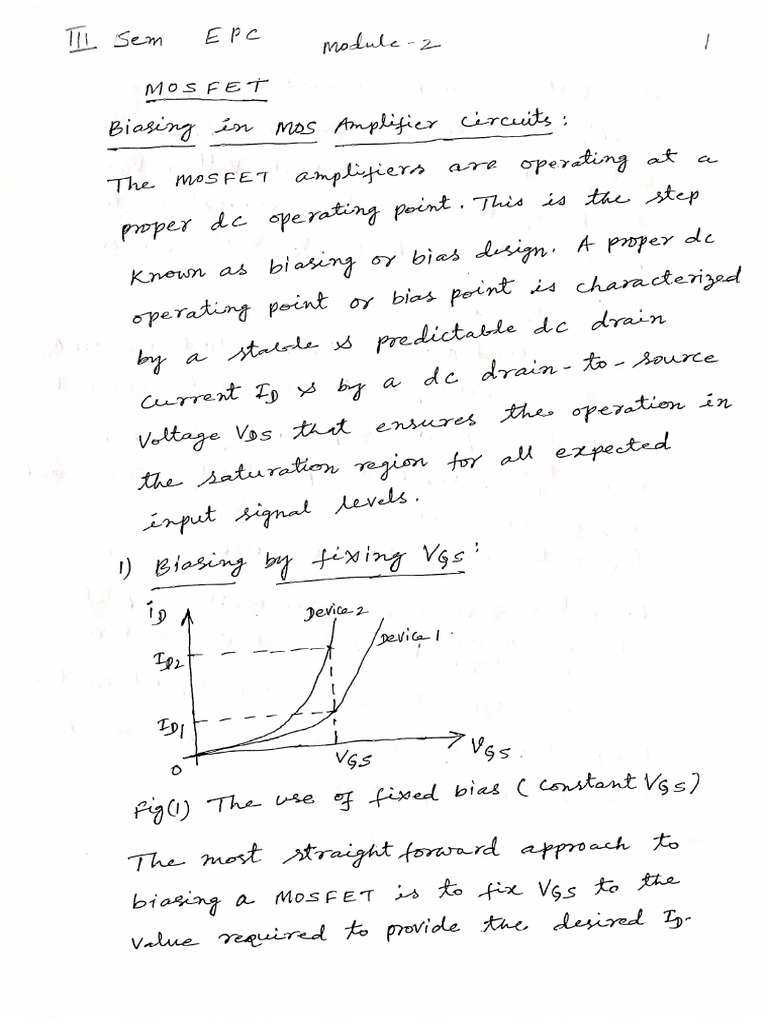 III Sem EPC Module-2 1
MOSFET
Biasing in MOS Amplifier circuits:
The MOSFET amplifiers are operating at a
proper dc operating point. This is the step
known as biasing or bias design. A proper dc
operating point or bias point is characterized
by a stable & predictable dc drain
current ID & by a dc drain-to-source
Voltage VDS that ensures the operation in
the saturation region for all expected
input signal levels.
1) Biasing by fixing VGS:
iD
Device 2
Device 1
ID2
ID1
0
VGS
VGS
Fig(1) The use of fixed bias (constant VGS)
The most straight forward approach to
biasing a MOSFET is to fix VGS to the
value required to provide the desired ID.